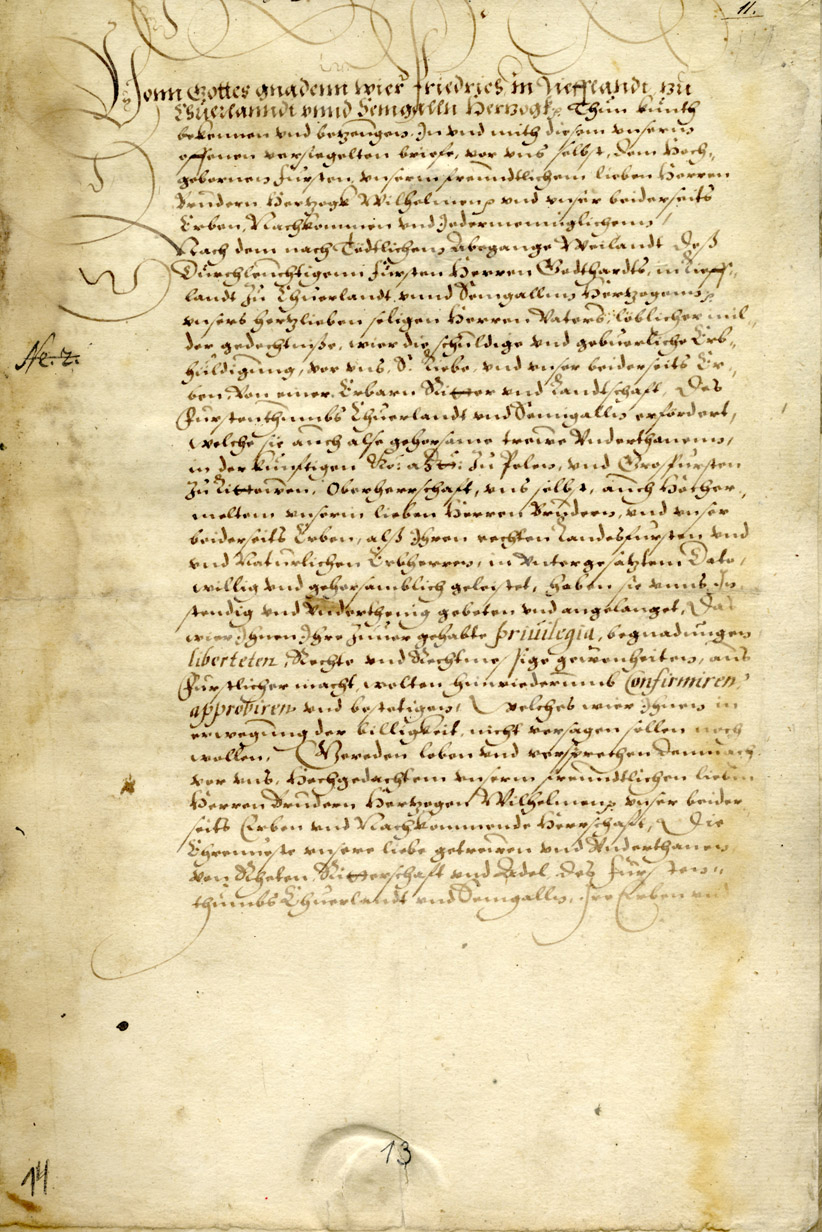 11.
Vonn Gottes gnadenn wier Friedrich in Liefflandt, zu
Churlanndt vnnd Semgalln Hertzogk, Thun kunth
bekennen vnd betzeugen, In vnd mith diesem vnserm
offenen versiegelten briefe, vor vns selbst, dem Hoch-,
gebornen Fursten, vnserm freundtlichem lieben Herren
Brudern Hertzogk Wilhelmen, vnd vnser beiderseits
Erben, Nachkommen vnd Jedermenniglichem /
Nach dem nach Tödtlichem Abegange Weilandt Deß
Durchleuchtigenn Fursten Herren Godthardts, in Lieff-,
landt Zu Churlandt, vnnd Semgalln Hertzogenn,
vnsers hertzlieben seligen Herren Vaters, löblicher mil-
der gedechtniße, wier die schuldige vnd gebuerliche Erb-
huldigung, vor vns, S. Liebe, vnd vnser beiderseits Er-,
ben, Von einer Erbarn Ritter vnd Landtschaft, Des
Furstenthumbs Churlandt vnd Semgalln erfordert,
welche sie auch alse gehorsame trewe Vnderthanenn,
in der kunftigen Kö: Zu Polen, vnd Grosfursten
Zu Littowen, Oberherrschaft, vns selbst, auch Hocher-,
meltem vnserm lieben Herren Brudern, vnd vnser
beiderseits Erben, alß Ihren rechten Landesfursten vnd
vnd Naturlichen Erbherren, in vntergesatztem Dato,
willig vnd gehorsamblich geleistet, haben sie vnns In
stendig vnd Vnderthenig gebeten vnd angelanget, Das
wier Ihnen Ihre Zuuor gehabte priuilegia, begnadungen
liberteten, Rechte vnd Rechtmessige gewonheiten, aus
Furstlicher macht, wolten hinwiederumb Confirmiren,
approbiren vnd bestetigen, Welches wier Ihnen in
erwegung der billigkeit, nicht versagen sollen noch
wollen, Gereden loben vnd versprechen demnach
vor vns, Hochgedachtem vnserm freundtlichen lieben
Herren Brudern Hertzogen Wilhelmen, vnser beider
seits Erben vnd Nachkommende Herrschaft, Die
Ehrenueste vnsere liebe getrewen vnd Vnderthanen
von Rheten, Ritterschaft vnd Adel, des Fursten-
thumbs Churlandt vnd Semgalln, Ire Erben vnd
No. 2.
13
14